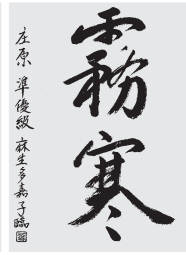 霧寒
庄原 準優級 麻生多嘉子臨